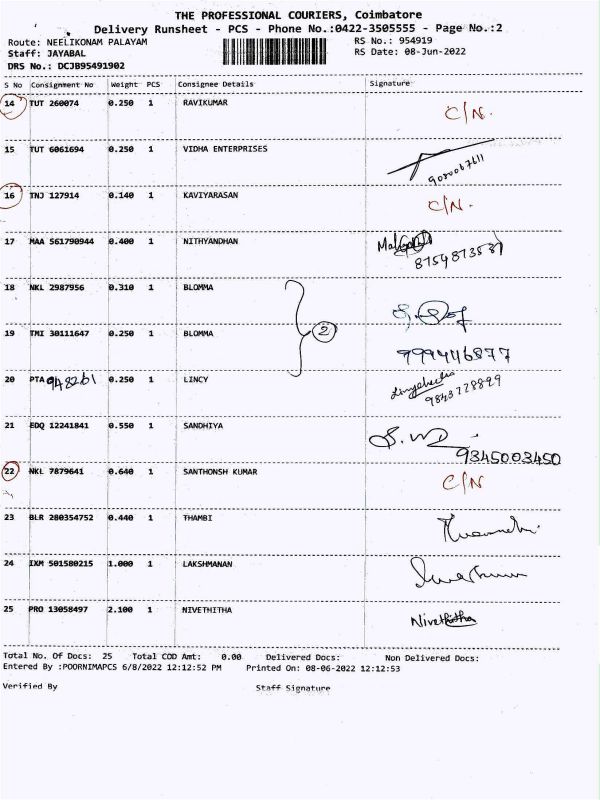 THE PROFESSIONAL COURIERS, Coimbatore
Delivery Runsheet - PCS - Phone No.:0422-3505555 - Page No.:2
Route: NEELIKONAM PALAYAM RS No.: 954919
Staff: JAYABAL RS Date: 08-Jun-2022
DRS No.: DCJB95491902
S No Consignment No Weight PCS Consignee Details Signature
14 TUT 260074 0.250 1 RAVIKUMAR C/N.
15 TUT 6061694 0.250 1 VIDHA ENTERPRISES
16 TNJ 127914 0.140 1 KAVIYARASAN C/N.
17 MAA 561790944 0.400 1 NITHYANDHAN
8754873531
18 NKL 2987956 0.310 1 BLOMMA
2
19 TMI 30111647 0.250 1 BLOMMA
20 PTA 948261 0.250 1 LINCY
9843728899
21 EDQ 12241841 0.550 1 SANDHIYA
9345003450
22 NKL 7879641 0.640 1 SANTHONSH KUMAR C/N
23 BLR 280354752 0.440 1 THAMBI
24 IXM 501580215 1.000 1 LAKSHMANAN
25 PRO 13058497 2.100 1 NIVETHITHA Nivethitha
Total No. Of Docs: 25 Total COD Amt: 0.00 Delivered Docs: Non Delivered Docs:
Entered By :POORNIMAPCS 6/8/2022 12:12:52 PM Printed On: 08-06-2022 12:12:53
Verified By Staff Signature